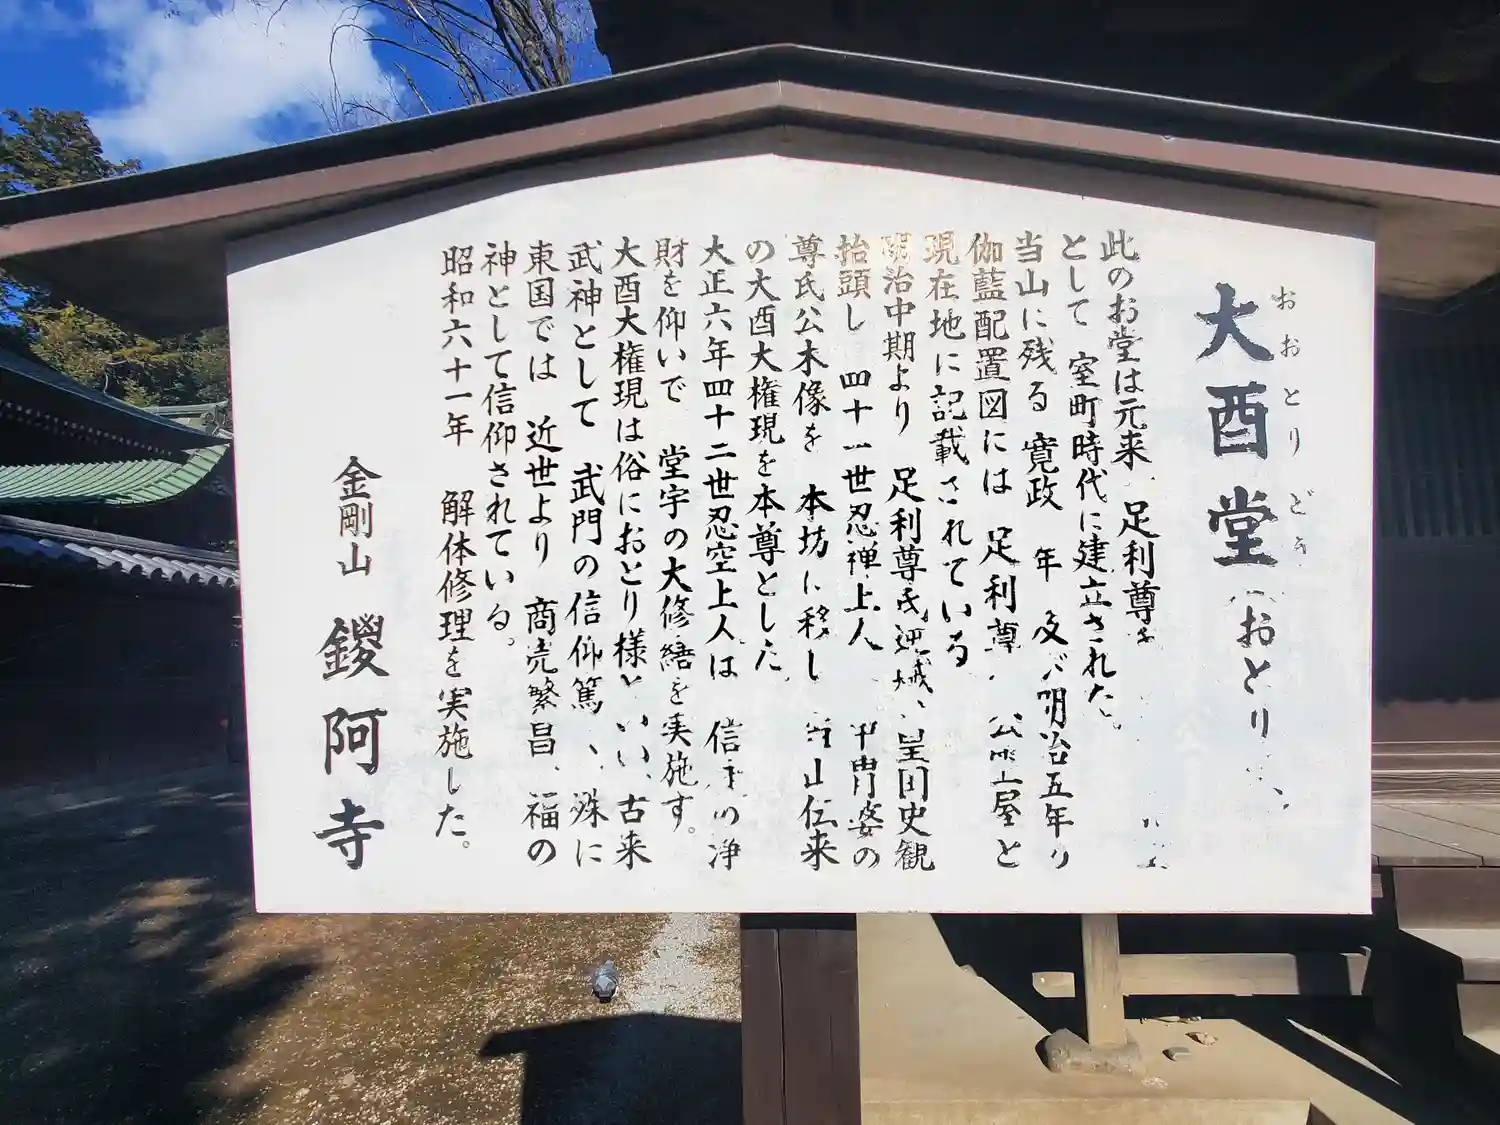 大酉堂 おとり
おおとり どう
此のお堂は元来 足利尊
として 室町時代に建立された
当山に残る 寛政 年 及び明治五年
伽藍配置図には 足利尊 屋と
現在地に記載されている
明治中期より 足利尊氏逆賊、皇国史観
抬頭し 四十一世忍禅上人 甲冑姿の
尊氏公木像を 本坊に移し 当山伝来
の大酉大権現を本尊とした
大正六年四十二世忍空上人は 信 の浄
財を仰いで 堂宇の大修繕を実施す。
大酉大権現は俗におとり様といい、古来
武神として 武門の信仰篤 、殊に
東国では 近世より 商売繁昌、福の
神として信仰されている。
昭和六十一年 解体修理を実施した。
金剛山 鑁阿寺